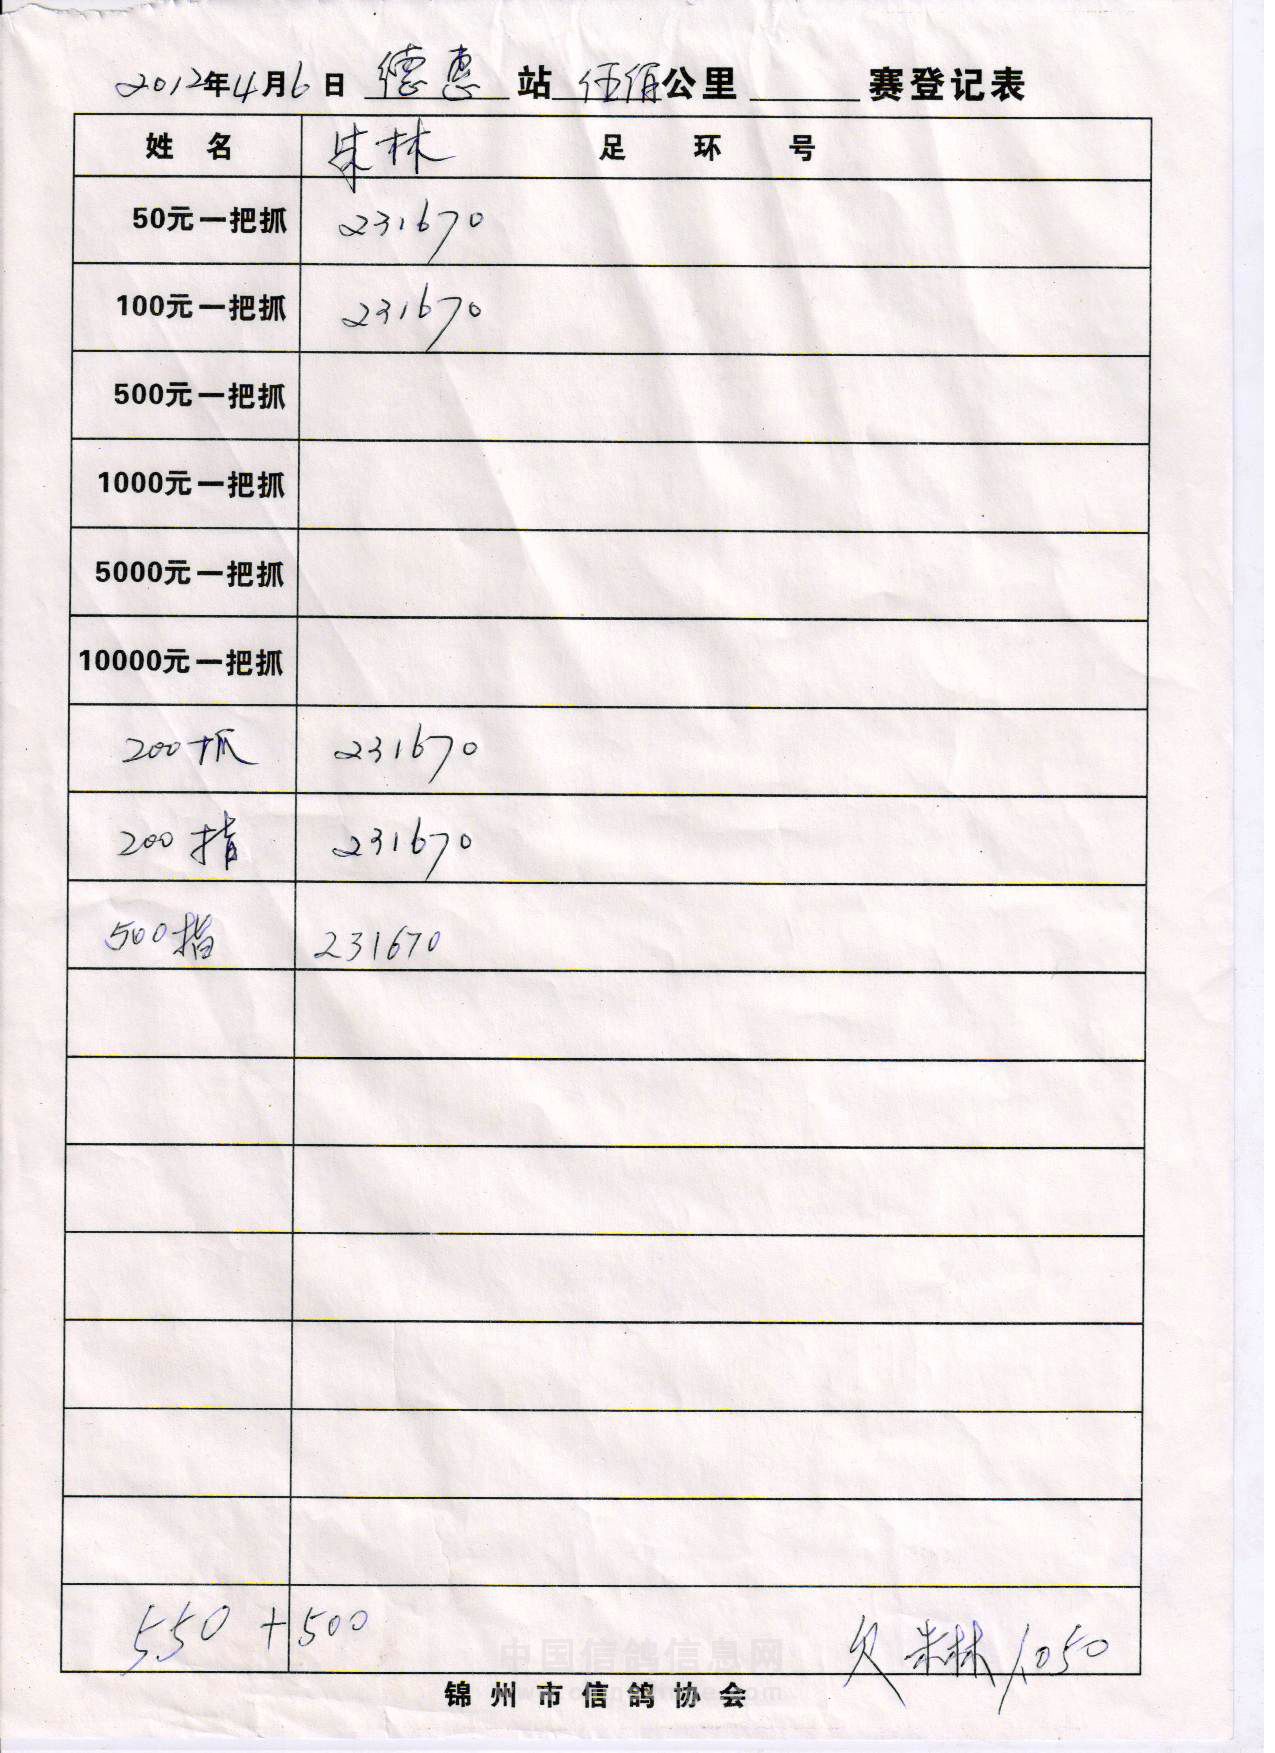 2012年4月6日 德惠 站 伍佰公里 赛登记表
姓 名 朱林 足 环 号
50元一把抓 231670
100元一把抓 231670
500元一把抓
1000元一把抓
5000元一把抓
10000元一把抓
200抓 231670
200指 231670
500指 231670
550 + 500
欠 朱林 1050
中国信鸽信息网
锦州市信鸽协会